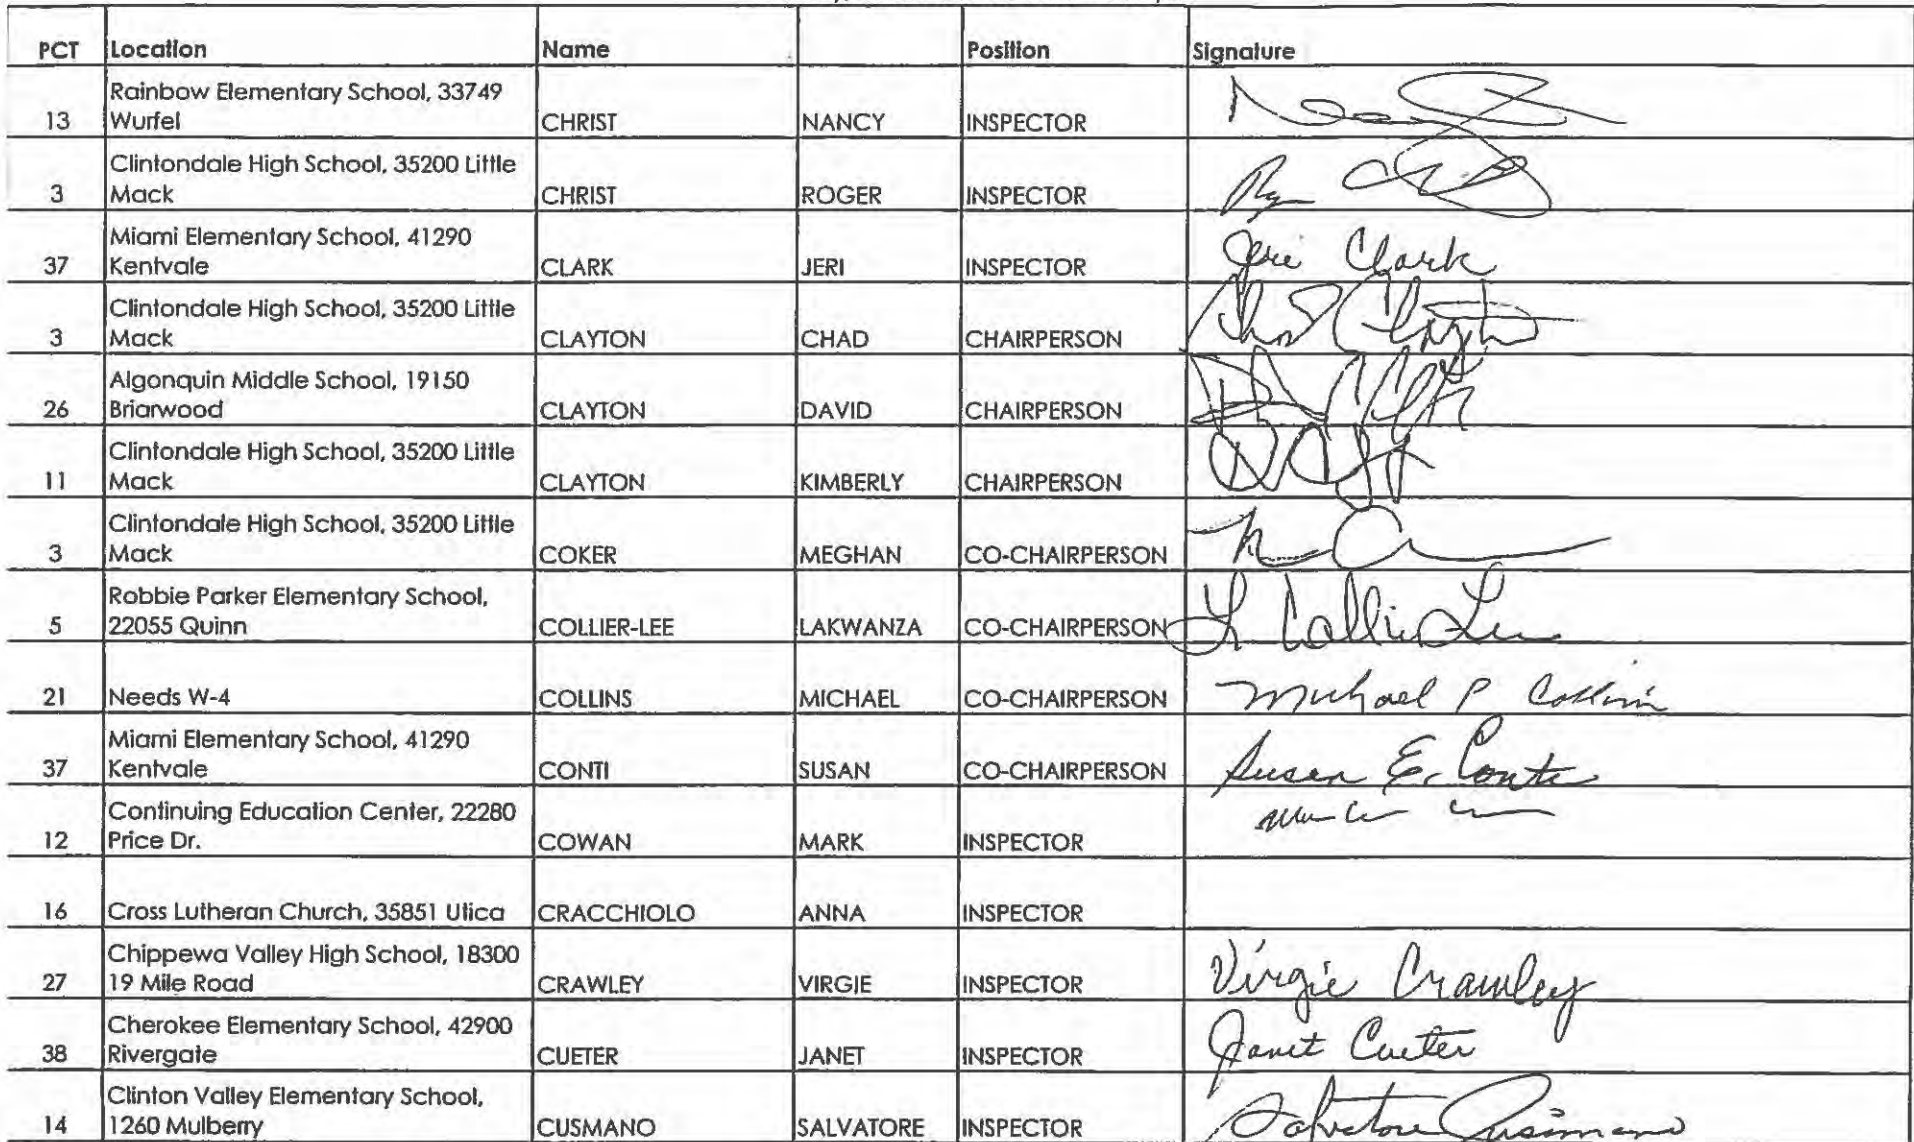 PCT Location Name Position Signature
Rainbow Elementary School, 33749
13 Wurfel CHRIST NANCY INSPECTOR
Clintondale High School, 35200 Little
3 Mack CHRIST ROGER INSPECTOR
Miami Elementary School, 41290
37 Kentvale CLARK JERI INSPECTOR Jeri Clark
Clintondale High School, 35200 Little
3 Mack CLAYTON CHAD CHAIRPERSON Chad Clayton
Algonquin Middle School, 19150
26 Briarwood CLAYTON DAVID CHAIRPERSON
Clintondale High School, 35200 Little
11 Mack CLAYTON KIMBERLY CHAIRPERSON
Clintondale High School, 35200 Little
3 Mack COKER MEGHAN CO-CHAIRPERSON
Robbie Parker Elementary School,
5 22055 Quinn COLLIER-LEE LAKWANZA CO-CHAIRPERSON L Collier Lee
21 Needs W-4 COLLINS MICHAEL CO-CHAIRPERSON Michael P Collins
Miami Elementary School, 41290
37 Kentvale CONTI SUSAN CO-CHAIRPERSON Susan E. Conti
Continuing Education Center, 22280
12 Price Dr. COWAN MARK INSPECTOR
16 Cross Lutheran Church, 35851 Utica CRACCHIOLO ANNA INSPECTOR
Chippewa Valley High School, 18300
27 19 Mile Road CRAWLEY VIRGIE INSPECTOR Virgie Crawley
Cherokee Elementary School, 42900
38 Rivergate CUETER JANET INSPECTOR Janet Cueter
Clinton Valley Elementary School,
14 1260 Mulberry CUSMANO SALVATORE INSPECTOR Salvatore Cusmano